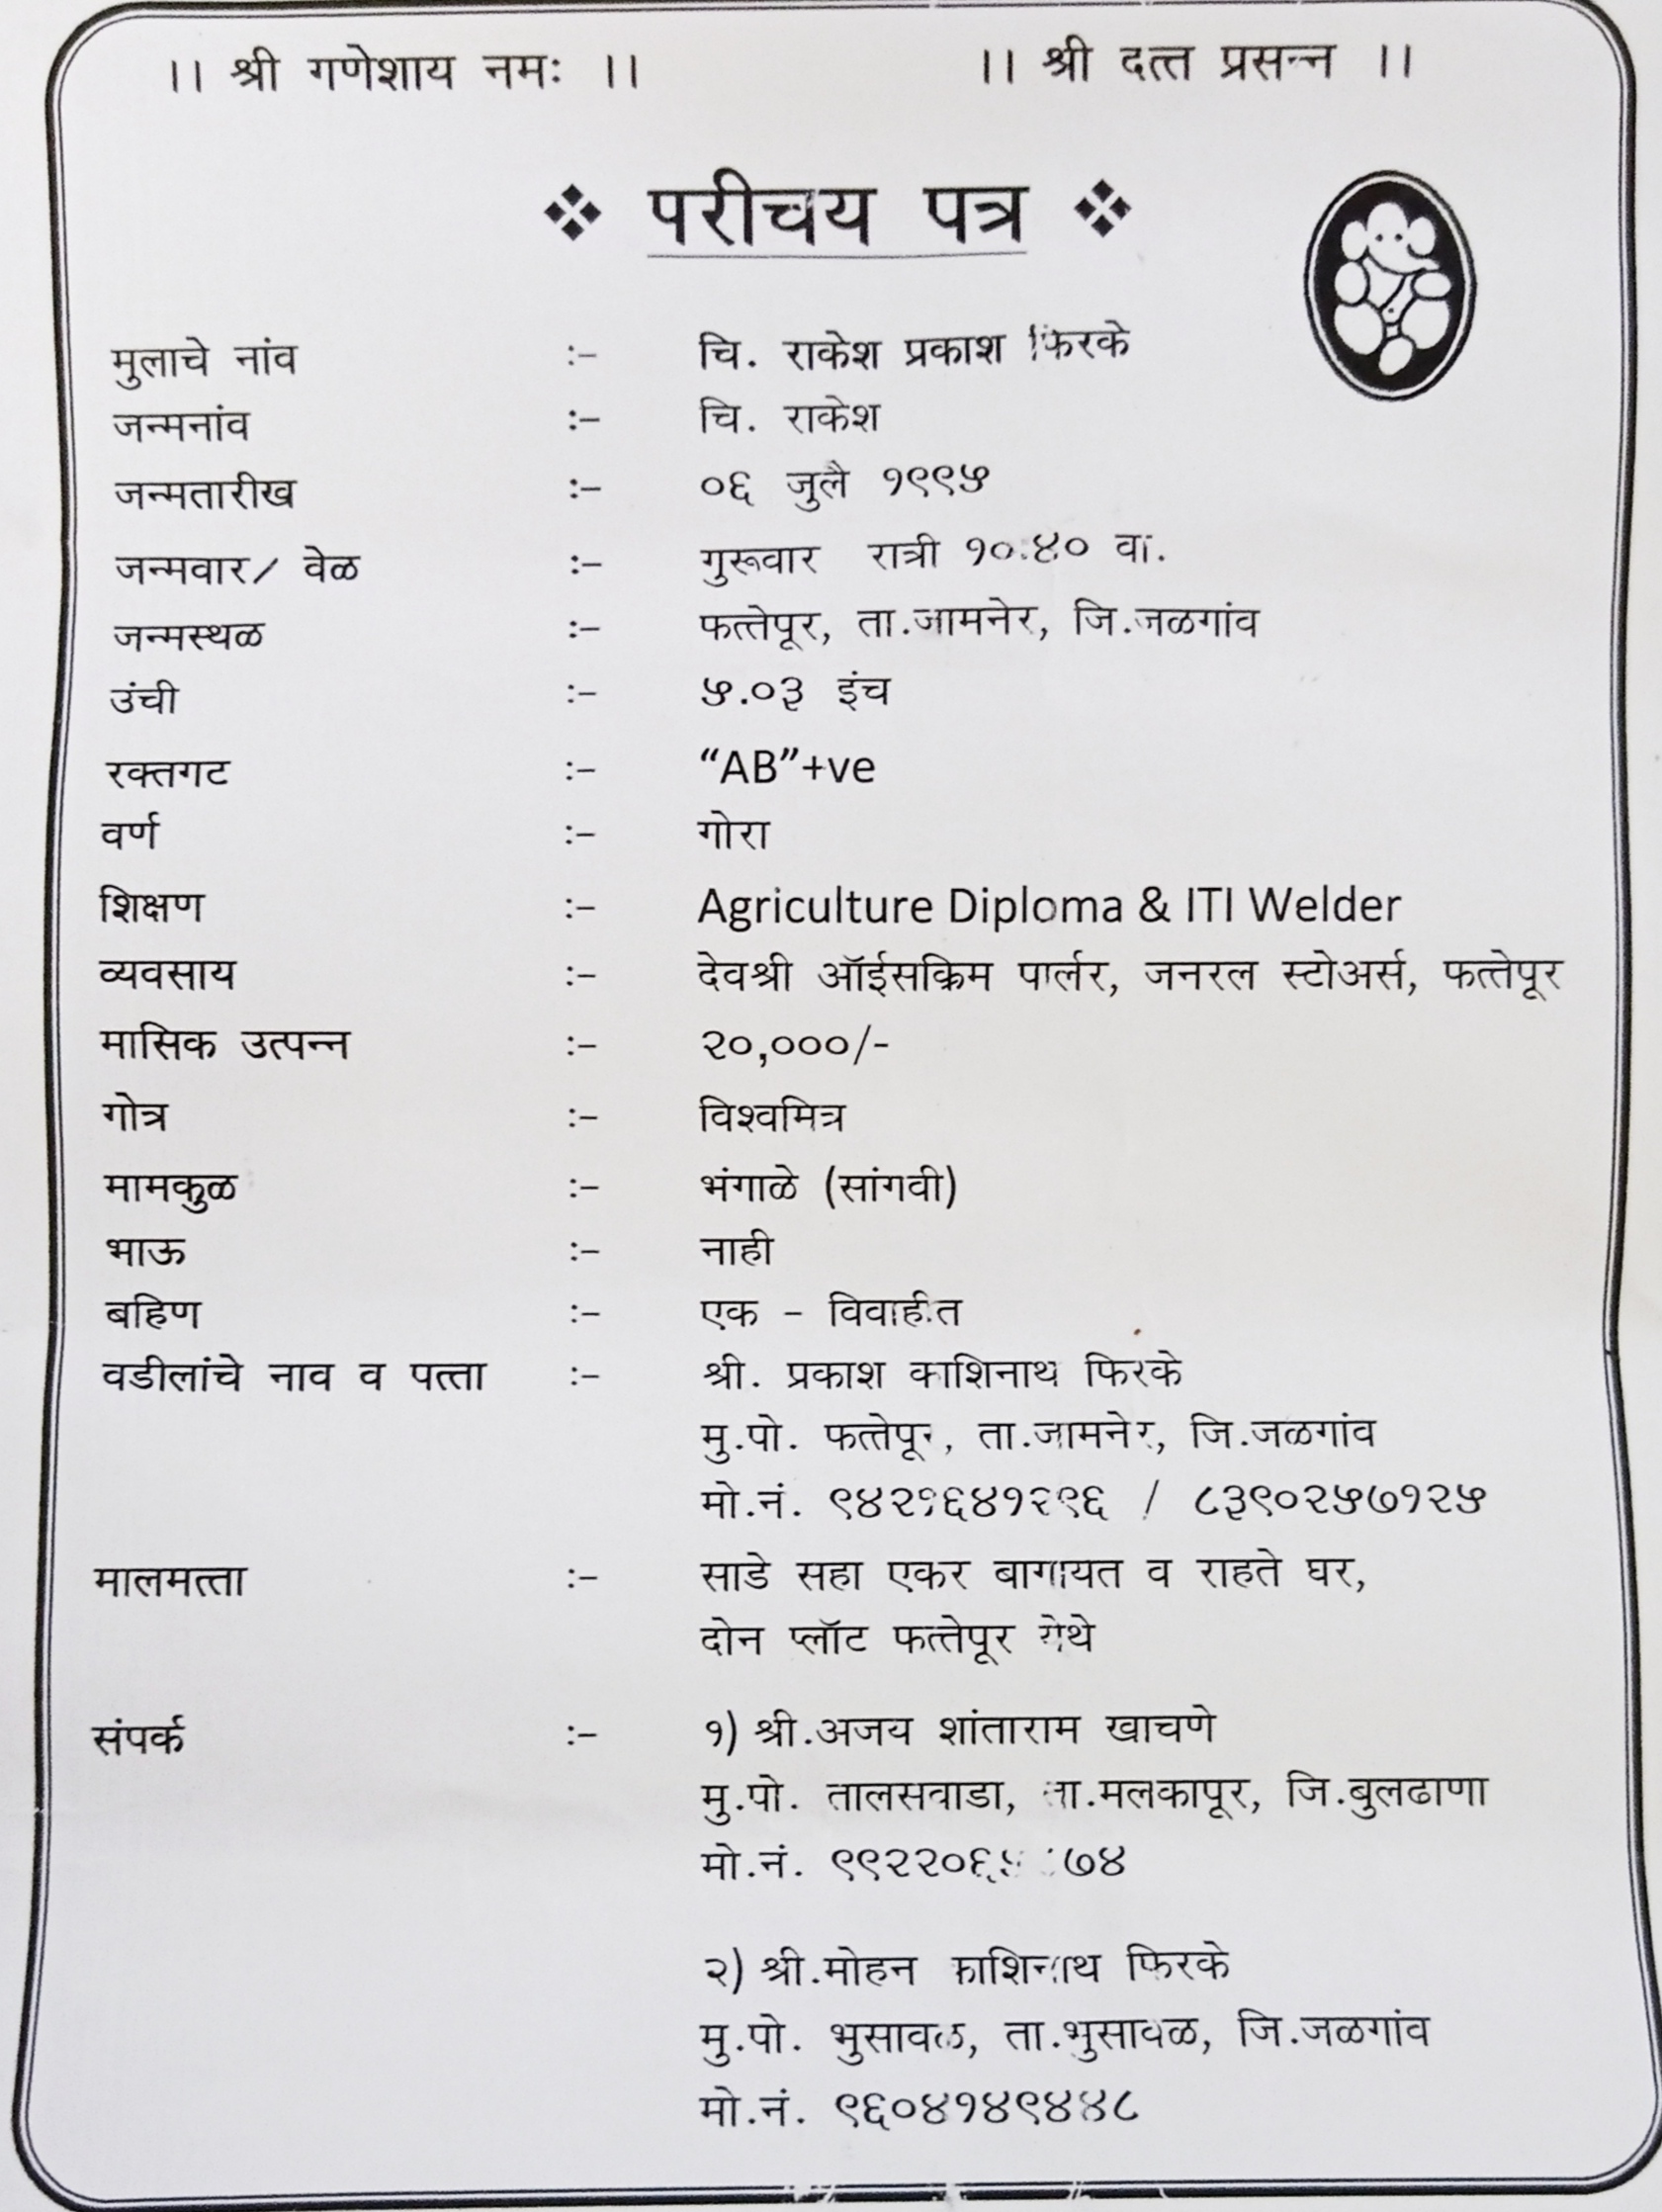 ।। श्री गणेशाय नमः ।। ।। श्री दत्त प्रसन्न ।।
❖ परीचय पत्र ❖
मुलाचे नांव :- चि. राकेश प्रकाश फिरके
जन्मनांव :- चि. राकेश
जन्मतारीख :- ०६ जुलै १९९५
जन्मवार/ वेळ :- गुरूवार रात्री १०:४० वा.
जन्मस्थळ :- फत्तेपूर, ता.जामनेर, जि.जळगांव
उंची :- ५.०३ इंच
रक्तगट :- “AB”+ve
वर्ण :- गोरा
शिक्षण :- Agriculture Diploma & ITI Welder
व्यवसाय :- देवश्री ऑईसक्रिम पार्लर, जनरल स्टोअर्स, फत्तेपूर
मासिक उत्पन्न :- २०,०००/-
गोत्र :- विश्वमित्र
मामकुळ :- भंगाळे (सांगवी)
भाऊ :- नाही
बहिण :- एक - विवाहीत
वडीलांचे नाव व पत्ता :- श्री. प्रकाश काशिनाथ फिरके
मु.पो. फत्तेपूर, ता.जामनेर, जि.जळगांव
मो.नं. / ८३९०२५७१२५
मालमत्ता :- साडे सहा एकर बागायत व राहते घर,
दोन प्लॉट फत्तेपूर येथे
संपर्क :- १) श्री.अजय शांताराम खाचणे
मु.पो. तालसवाडा, ता.मलकापूर, जि.बुलढाणा
मो.नं.
२) श्री.मोहन काशिनाथ फिरके
मु.पो. भुसावळ, ता.भुसावळ, जि.जळगांव
मो.नं. ९६०४१४९४४८